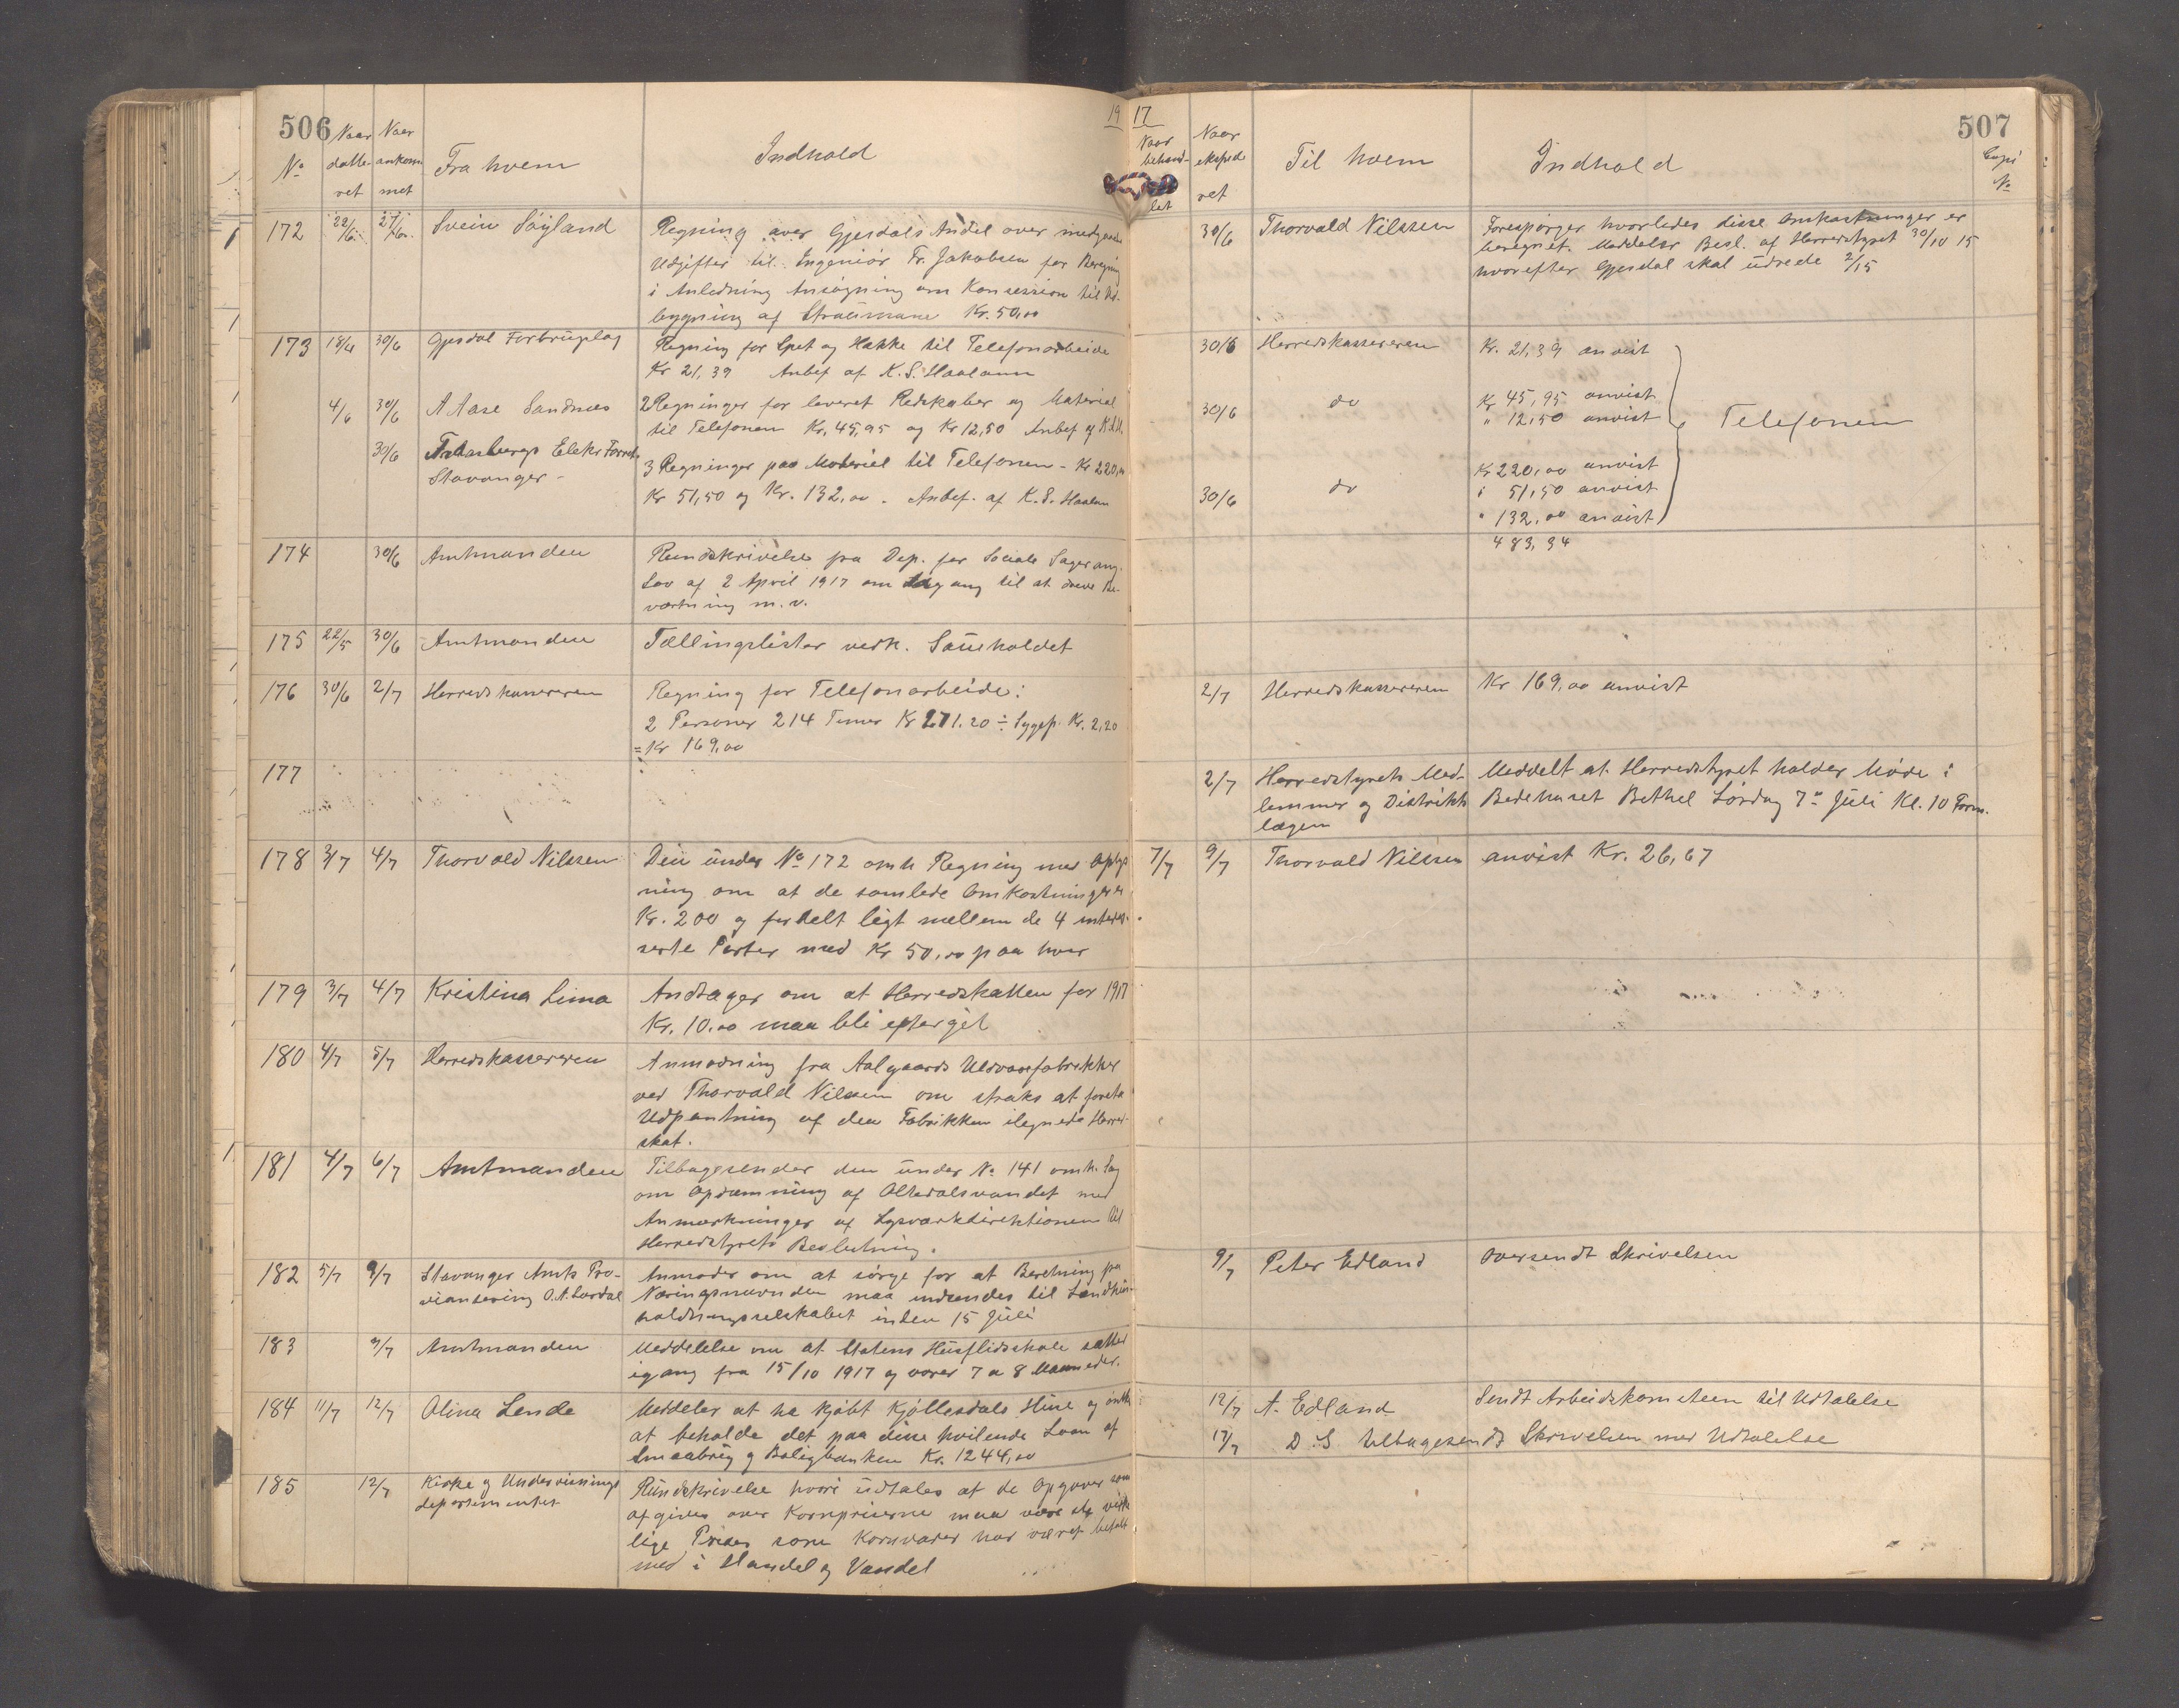 506
19
No
Naar datte-ret
Naar ankom-met
Fra hvem
Indhold
172 22/6 27/6 Svein Søyland Regning over Gjesdals Andel over
Udgifter til Ingeniør Fr. Jakobsen for
i Anledning Ansøgning om Konsession til Ud-
bygning af Kr. 50,00
173 18/4 30/6 Gjesdal Forbrugslag Regning for Spet og Hakke til Telefonarbeide
Kr 21,39 Anbef af K. S. Haaland
4/6 30/6 A Aase Sandnes 2 Regninger for leveret Redskaber og Materiel
til Telefonen Kr. 45,95 og Kr 12,50 Anbef af K.S.H.
30/6 Elektr Forretn 3 Regninger paa Materiel til Telefonen - Kr 220,00
Stavanger - Kr 51,50 og Kr. 132,00. Anbef. af K. S. Haaland
174 30/6 Amtmanden Rundskrivelse fra Dep. for Sociale Sager ang.
Lov af 2 April 1917 om Adgang til at drive Be-
vertning m.v.
175 22/5 30/6 Amtmanden Tællingslister vedk. Saueholdet
176 30/6 2/7 Herredskassereren Regning for Telefonarbeide:
2 Personer 214 Timer Kr 171.20 ÷ Sygep. Kr. 2,20
= Kr 169,00
177
178 3/7 4/7 Thorvald Nilssen Den under No 172 omh Regning med Oplys
ning om at de samlede Omkostninger er
Kr. 200 og fordelt ligt mellem de 4 interes-
serte Parter med Kr 50,00 paa hver
179 3/7 4/7 Kristina Lima Andrager om at Herredskatten for 1917
Kr. 10.00 maa bli eftergit
180 4/7 5/7 Herredskassereren Anmodning fra Aalgaards Uldvarefabrikker
ved Thorvald Nilssen om straks at foreta
Udpantning af den Fabrikken ilignede Herred-
skat.
181 4/7 6/7 Amtmanden Tilbagesender den under No 141 omh. Sag
om Opdæmning af Oltedalsvandet med
Anmerkninger af til
Herredstyrets Beslutning.
182 5/7 9/7 Stavanger Amts Pro- Anmoder om at sørge for at Beretning fra
viantering O. A. Lovdal Næringsnevnden maa indsendes til Landhus
holdningsselskabet inden 15 Juli
183 9/7 Amtmanden Meddelelse om at Statens Husflidsskole sættes
igang fra 15/10 1917 og varer 7 a 8 Maaneder.
184 11/7 12/7 Olina Lende Meddeler at ha kjøbt Kjøllesdals Huse og ønsker
at beholde det paa disse hvilende Laan af
Smaabrug og Boligbanken Kr. 1244,00
185 12/7 Kirke og Undervisnings Rundskrivelse hvori udtales at de Opgaver som
departementet afgives over Kornpriserne maa være de virke
lige Priser som Kornvarer har været betalt
med i Handel og Vandel
17
507
Naar behand-let
Naar ekspede ret
Til hvem
Indhold
Copi No
30/6 Thorvald Nilssen Forespørger hvorledes disse Omkostninger er
beregnet. Meddeler Besl. af Herredstyret 30/10 15
hvorefter Gjesdal skal udrede 2/15
30/6 Herredskassereren Kr. 21,39 anvist
30/6 do Kr 45,95 anvist
" 12,50 anvist
Telefonen
Kr 220,00 anvist
30/6 do " 51,50 anvist
" 132,00 anvist
483,34
2/7 Herredskassereren Kr 169,00 anvist
2/7 Herredstyrets Med- Meddelt at Herredstyret holder Møde i
lemmer og Distrikts Bedehuset Bethel Lørdag 7de Juli Kl. 10 Form.
lægen
7/7 9/7 Thorvald Nilssen anvist Kr. 26,67
9/7 Peter Edland Oversendt Skrivelsen
12/7 A. Edland Sendt Arbeidskomiteen til Udtalelse
17/7 D. S tilbagesendt Skrivelsen med Udtalelse